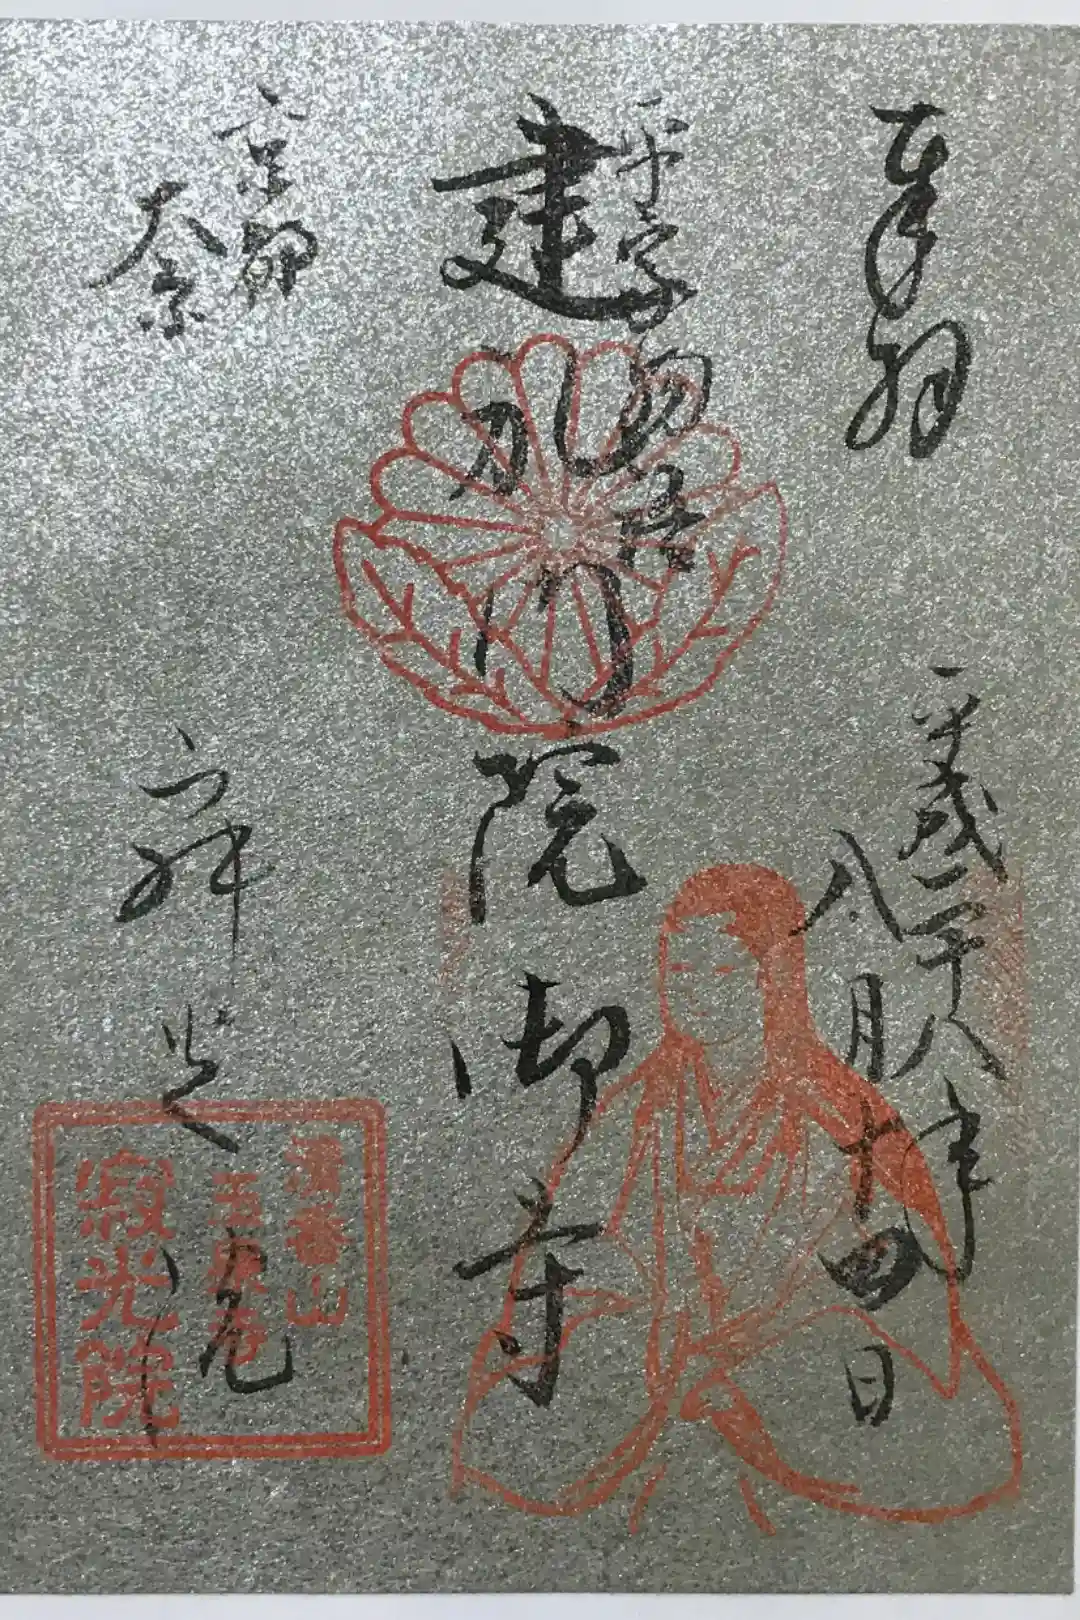 奉拝
平成二十八年
八月十四日
平家物語
建礼門院御寺
京都
大原
清香山
玉泉寺
寂光院